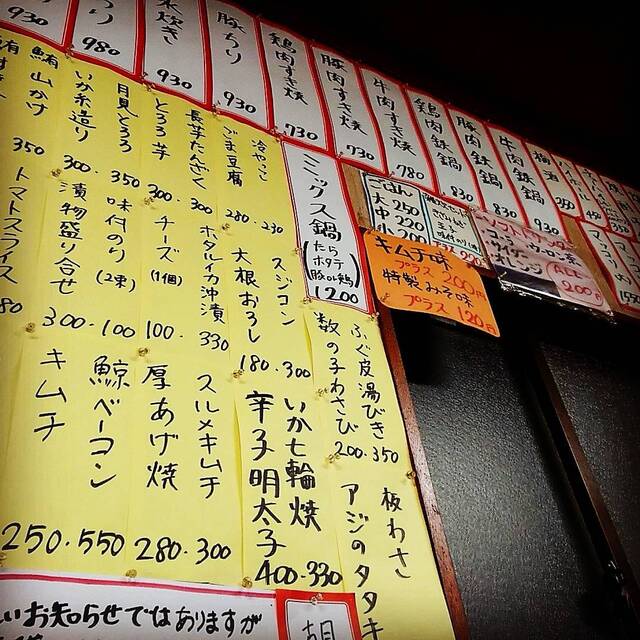 930
ちり
980
水炊き
930
豚ちり
930
鶏肉すき焼
730
豚肉すき焼
730
牛肉すき焼
780
鶏肉鉄鍋
830
豚肉鉄鍋
830
牛肉鉄鍋
930
梅酒
ミックス鍋
(たら
ホタテ
豚or鶏)
1200
ごはん
大 250
中 220
小 200
キムチ味
プラス 200円
特製みそ味
プラス 120円
ソフトドリンク
コーラ ウーロン茶
サイダー
オレンジ
ALL
200円
冷やっこ
230
ごま豆腐
280
長芋たんざく
300
とろろ芋
300
月見とろろ
350
いか糸造り
300
鮪山かけ
350
スジコン
300
大根おろし
180
ホタルイカ沖漬
330
チーズ(1個)
100
味付のり(2束)
100
漬物盛り合せ
300
トマトスライス
ふぐ皮湯びき
350
数の子わさび
200
いか七輪焼
330
辛子明太子
400
スルメキムチ
300
厚あげ焼
280
鯨ベーコン
550
キムチ
250
板わさ
アジのタタキ
いお知らせではありますが